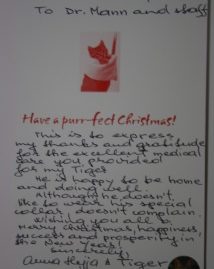 To Dr. Mann and staff
Have a purr-fect Christmas!
This is to express
my thanks and gratitude
for the excellent medical
care you provided
for my Tiger
He is happy to be home
and doing well.
Although he doesn't
like to wear his special
collar, doesn't complain.
Wishing you all
Marry Christmas, happiness,
success and prosperity in
the New Years!
Sincerely,
Anna & Tiger